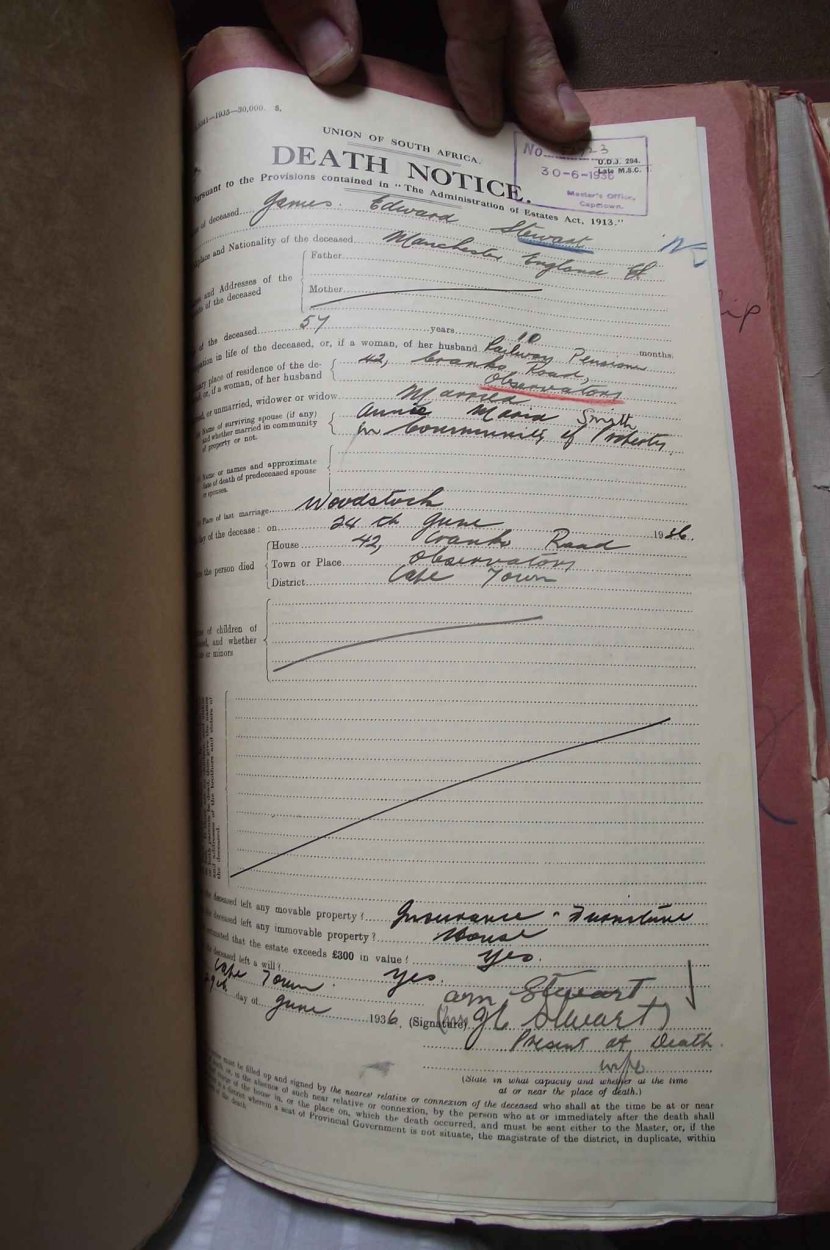 1935—30,000. S.
UNION OF SOUTH AFRICA.
DEATH NOTICE.
No 3
U.D.J. 294.
Late M.S.C. 1
30-6-1936
Master's Office,
Capetown.
Pursuant to the Provisions contained in "The Administration of Estates Act, 1913."
of deceased James Edward Stewart
place and Nationality of the deceased Manchester England
and Addresses of the
of the deceased
Father
Mother
of the deceased 57 years 10 months.
in life of the deceased, or, if a woman, of her husband Railway Pensioner
place of residence of the de-
or, if a woman, of her husband
42, Cranko Road,
Observatory
or unmarried, widower or widow Married
Name of surviving spouse (if any)
and whether married in community
of property or not.
Annie Maria Smyth
in Community of Property.
Name or names and approximate
date of death of predeceased spouse
or spouses.
Place of last marriage Woodstock
of the decease: on 24th June 1936.
the person died
House 42, Cranko Road
Town or Place Observatory
District Cape Town
of children of
and whether
or minors
and addresses of the brothers and sisters of
the deceased.
the deceased left any movable property? Insurance - Furniture
the deceased left any immovable property? House
estimated that the estate exceeds £300 in value? Yes.
deceased left a will? Yes.
Cape Town
29th day of June 1936. (Signature)
Stewart
Stewart)
Present at Death
wife
(State in what capacity and whether at the time
at or near the place of death.)
must be filled up and signed by the nearest relative or connexion of the deceased who shall at the time be at or near
death, or, in the absence of such near relative or connexion, by the person who at or immediately after the death shall
charge of the house in, or the place on, which the death occurred, and must be sent either to the Master, or, if the
is a district wherein a seat of Provincial Government is not situate, the magistrate of the district, in duplicate, within
of the death